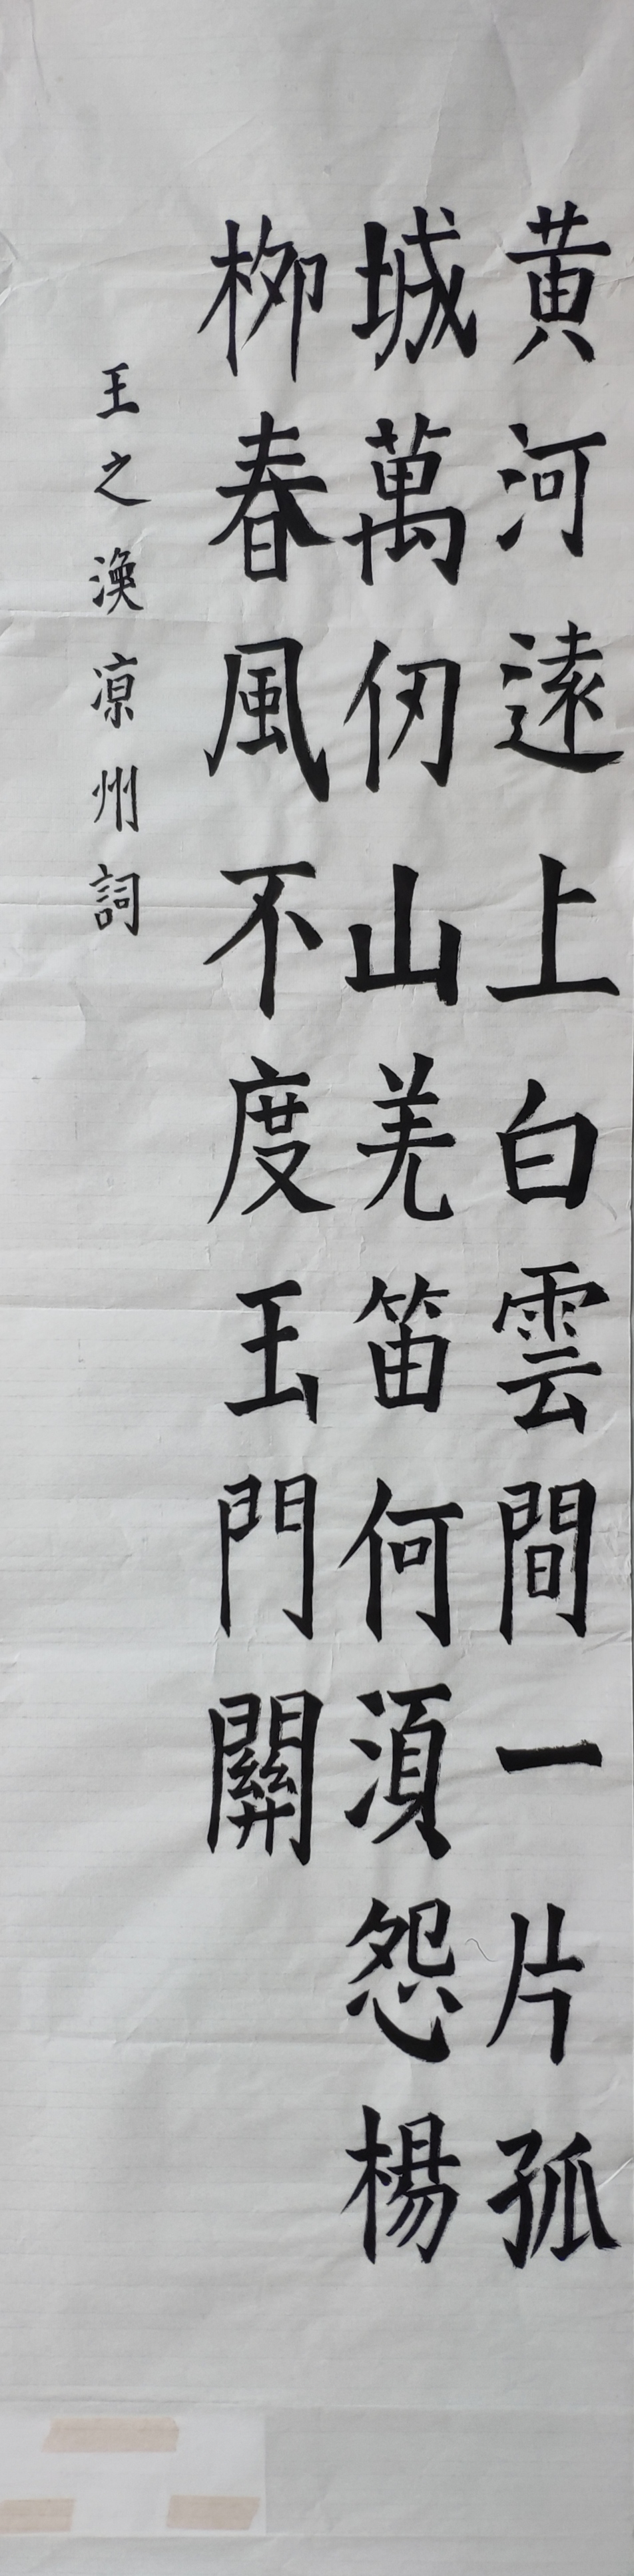 黄河遠上白雲間一片孤
城萬仞山羌笛何須怨楊
柳春風不度玉門關
王之渙凉州詞